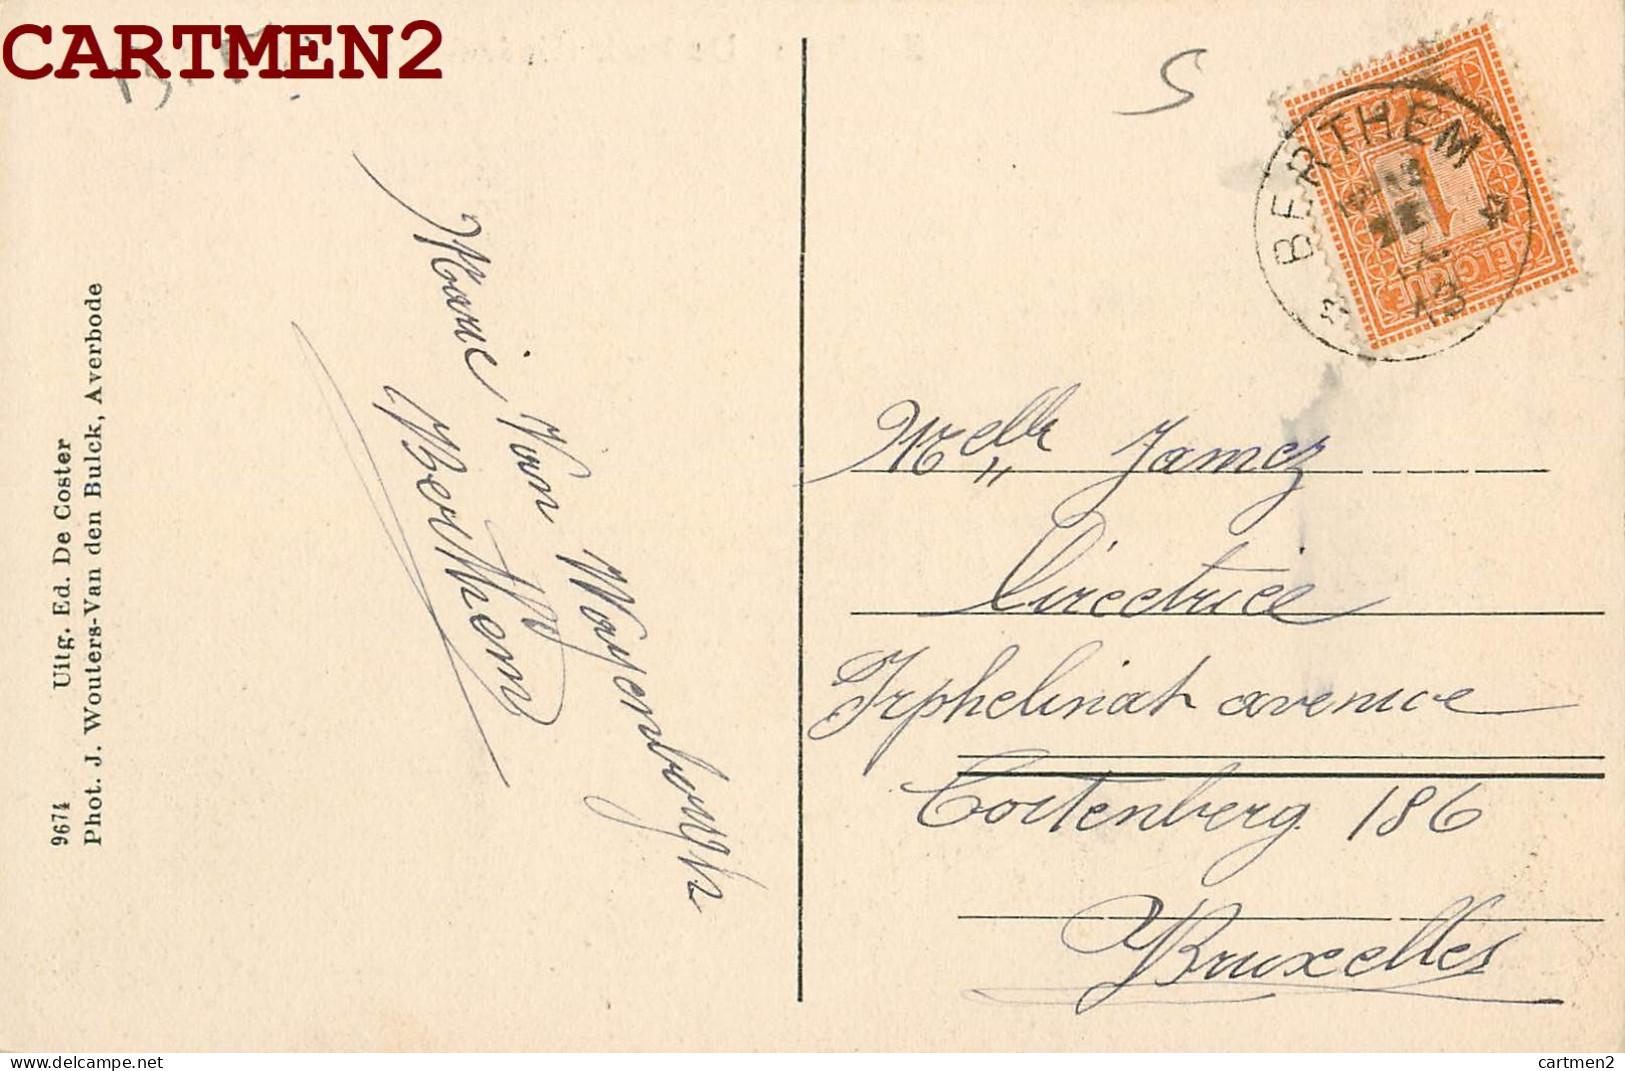 CARTMEN2
S
BERTHEM
4
IX
13
1
BELGIQUE
Marie Van Wayenbergh
Berthem
Melle Jamez
Directrice
Orphelinat avenue
Cortenberg 186
Bruxelles
9674 Uitg. Ed. De Coster
Phot. J. Wouters-Van den Bulck, Averbode
https://www.delcampe.net
cartmen2